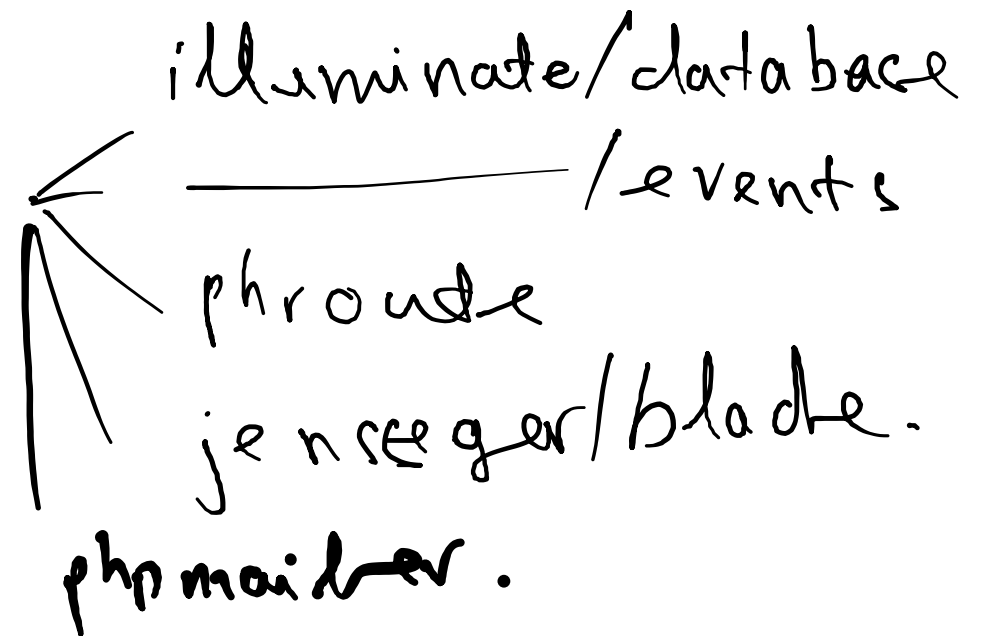 illuminate/database
/events
phroute
jenseeger/blade.
phpmailer.